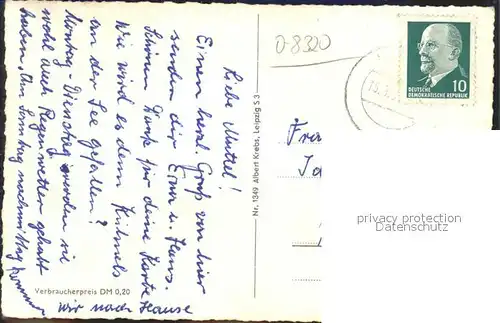 D-8320
Liebe Mutzel!
Einen herzl. Gruß von hier
senden dir Erna u. Hans.
Schönen Dank für deine Karte,
Wie wird es denn Kühnels
an der See gefallen?
Montag Dienstag werden sie
wohl auch Regenwetter gehabt
haben. Am Sonntag nachmittag kommen
wir nach Hause
Verbraucherpreis DM 0,20
Nr. 1349 Albert Krebs, Leipzig S 3
10
DEUTSCHE
DEMOKRATISCHE REPUBLIK
Fra
Ja
privacy protection
Datenschutz